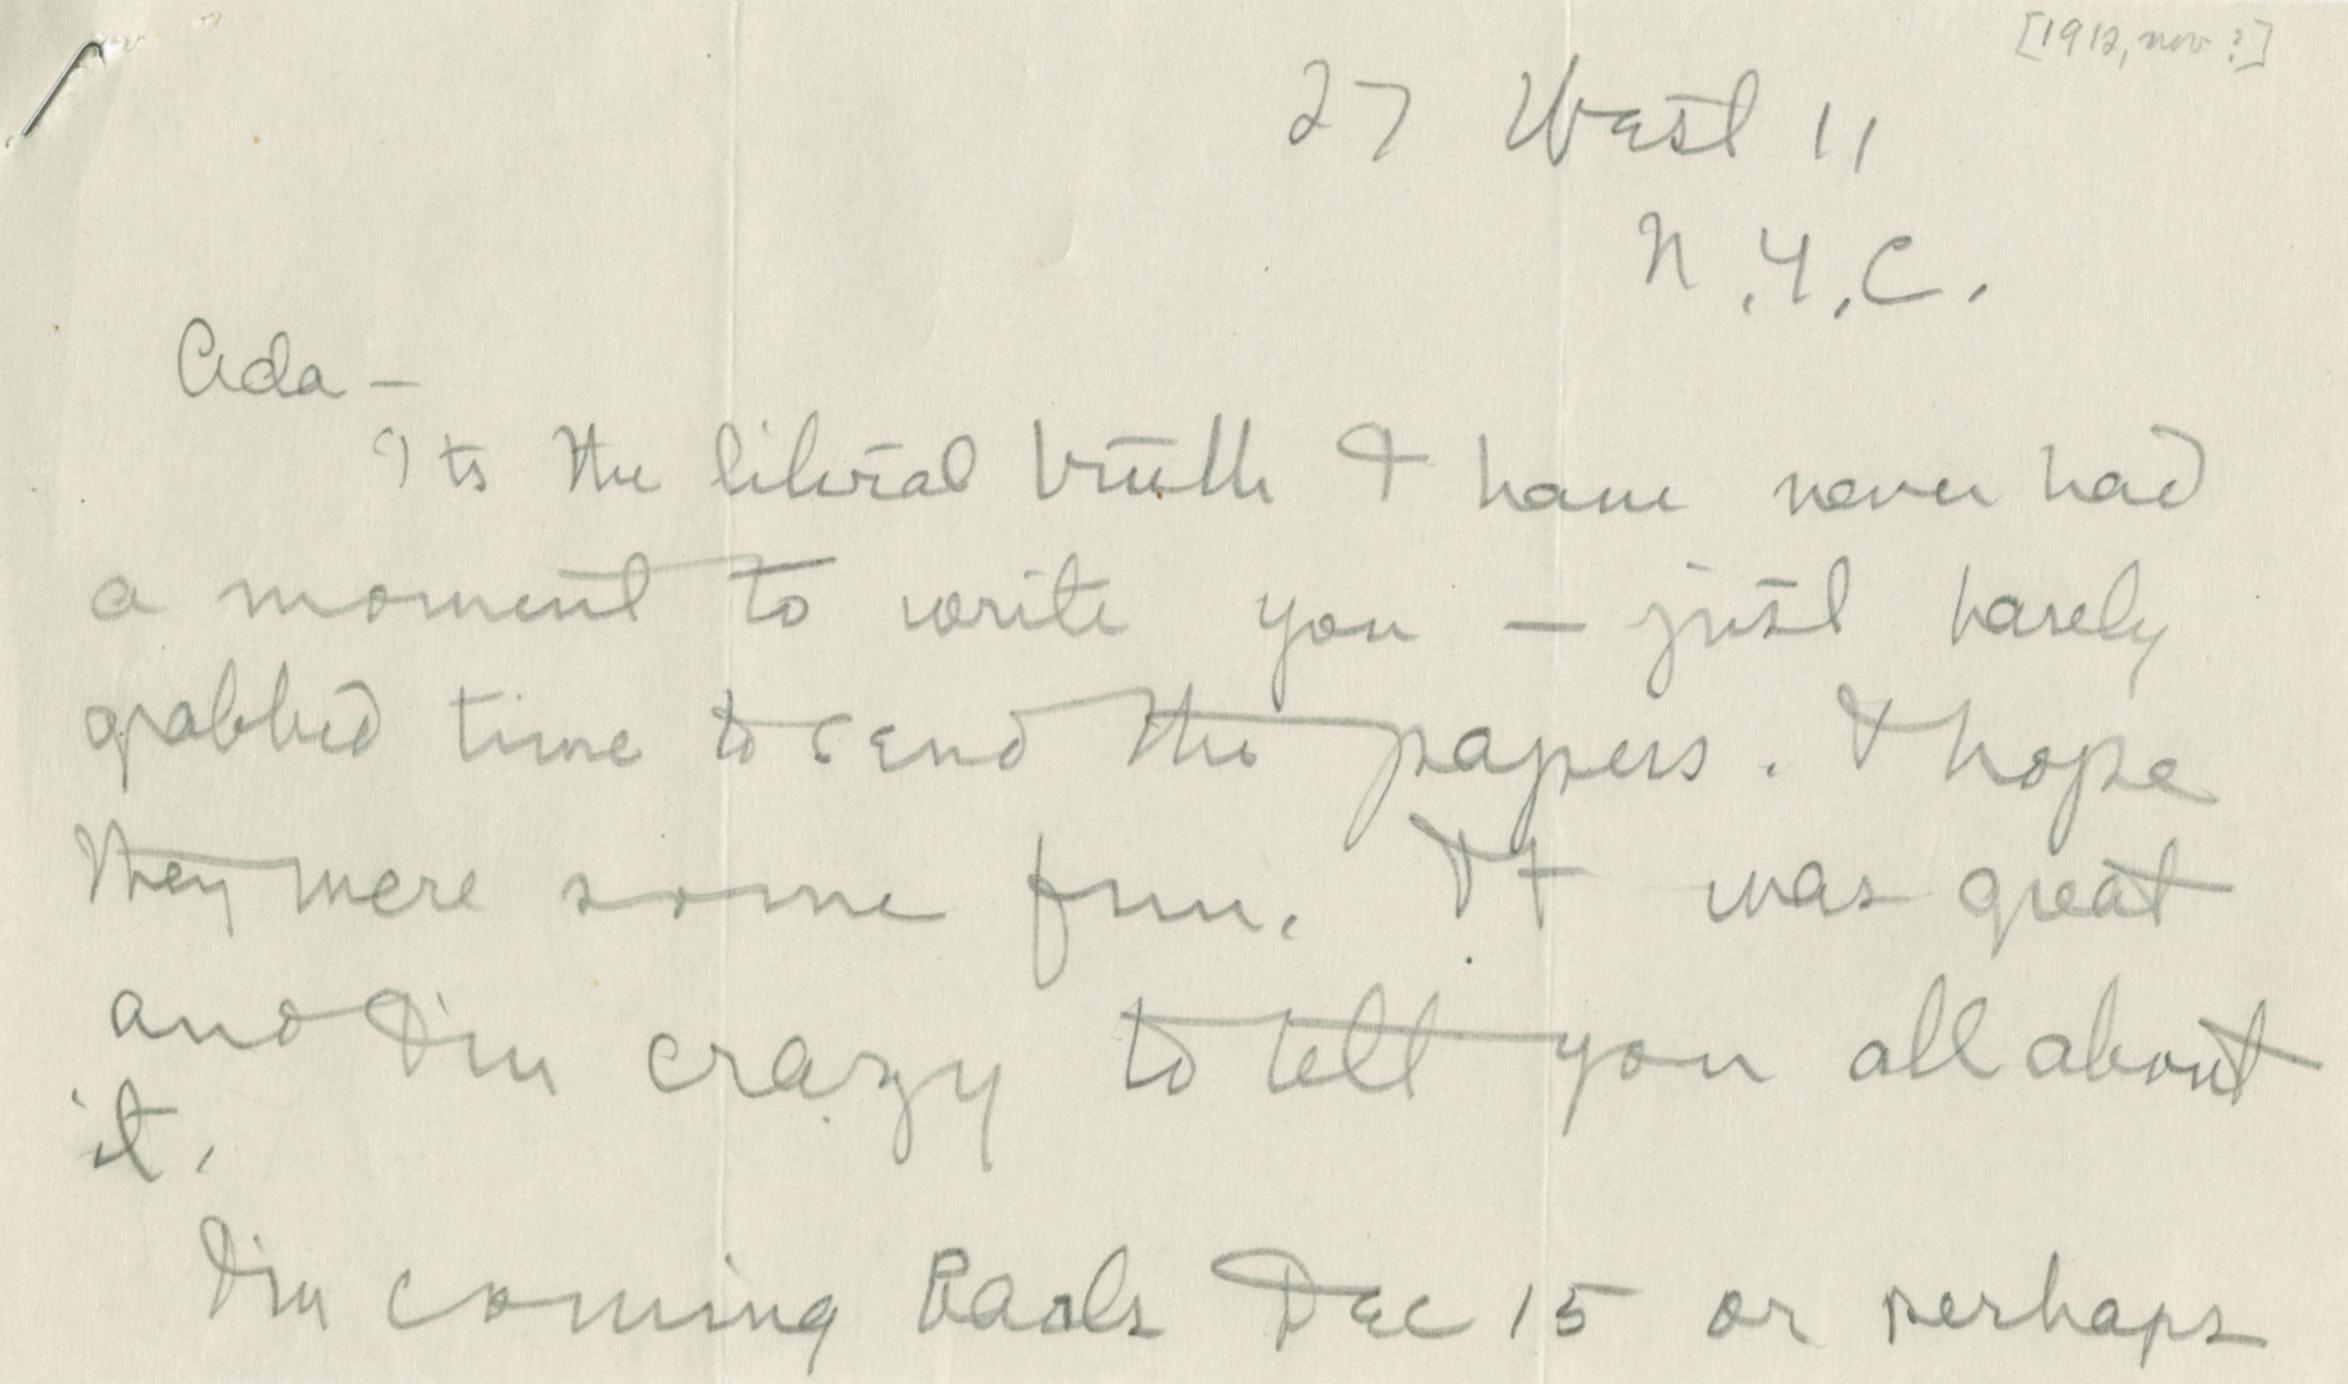 [1912, nov ?]
27 West 11
N.Y.C.
Ada —
Its the literal truth I have never had
a moment to write you — just barely
grabbed time to send the papers. I hope
they were some fun. It was great
and I'm crazy to tell you all about
it.
I'm coming Back Dec 15 or perhaps